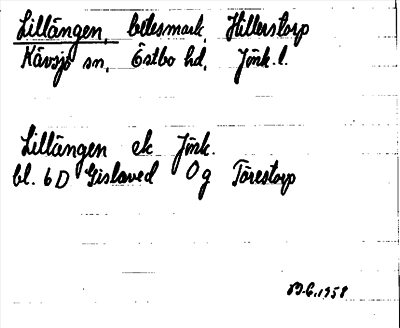 Lillängen, betesmark, Hillerstorp
Kävsjö sn, Östbo hd, Jönk.l.
Lillängen ek Jönk.
bl. 6D Gislaved 0g Törestorp
6.1958